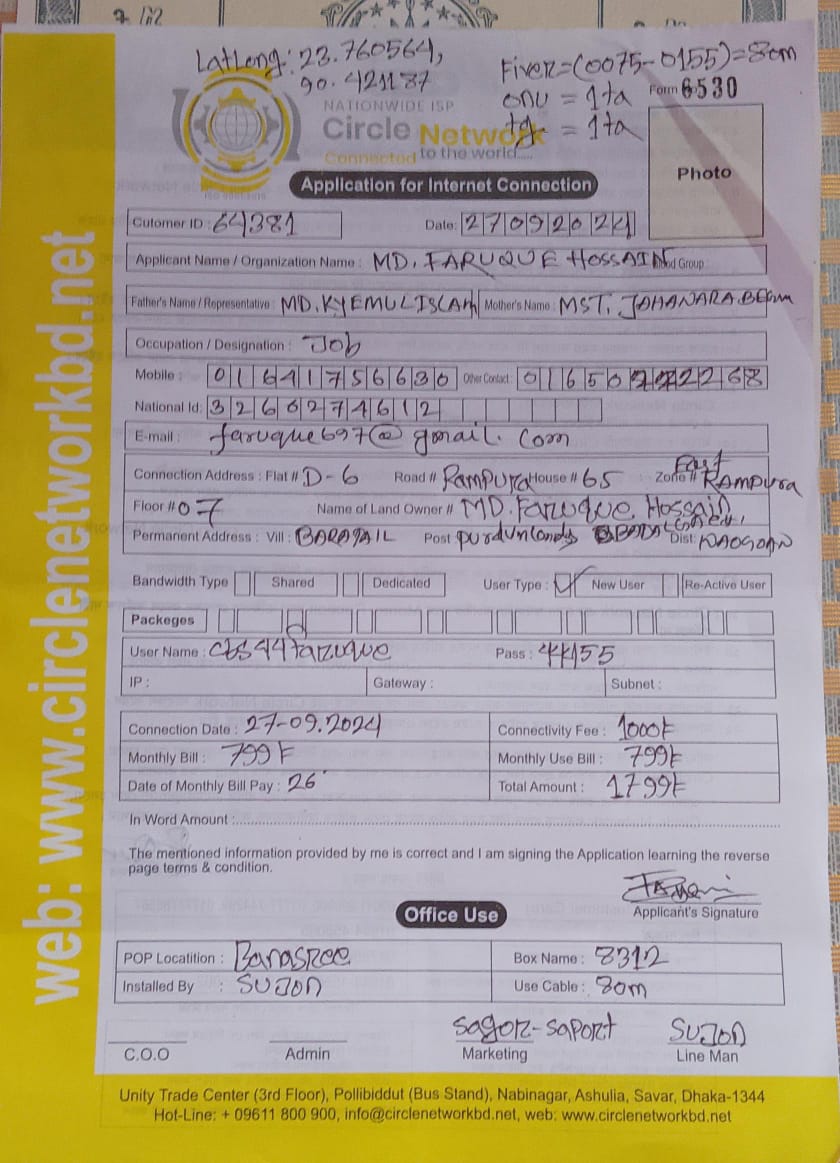 LatLong: 23.760564,
90.421187
Fiver=(0075-0155)=80m
onu = 1ta
tg = 1ta
Form 6530
NATIONWIDE ISP
Circle Network
Connected to the world.....
Photo
Application for Internet Connection
Cutomer ID : 64381 Date: 27092024
Applicant Name / Organization Name : MD. FARUQUE HOSSAIN Group :
Father's Name / Representative : MD. KYEMUL ISLAM Mother's Name : MST. JOHANARA BEGUM
Occupation / Designation : Job
Mobile : 01641756630 Other Contact : 01650 2268
National Id: 3266274612
E-mail : faruque697@gmail.com
Connection Address : Flat # D-6 Road # Rampura House # 65 Zone # East Rampura
Floor # 07 Name of Land Owner # MD. Faruque Hossain
Permanent Address : Vill : BARATAIL Post Dist: NAOGOAN
Bandwidth Type Shared Dedicated User Type : New User Re-Active User
Packeges
User Name : cbs44faruque Pass : 44155
IP : Gateway : Subnet :
Connection Date : 27-09.2024 Connectivity Fee : 1000৳
Monthly Bill : 799৳ Monthly Use Bill : 799৳
Date of Monthly Bill Pay : 26 Total Amount : 1799৳
In Word Amount :
The mentioned information provided by me is correct and I am signing the Application learning the reverse
page terms & condition.
Applicant's Signature
Office Use
POP Locatition : Banasree Box Name : 8312
Installed By : SUJON Use Cable : 80m
Sagor-Saport SUJON
C.O.O Admin Marketing Line Man
Unity Trade Center (3rd Floor), Pollibiddut (Bus Stand), Nabinagar, Ashulia, Savar, Dhaka-1344
Hot-Line: + 09611 800 900, info@circlenetworkbd.net, web: www.circlenetworkbd.net
web: www.circlenetworkbd.net